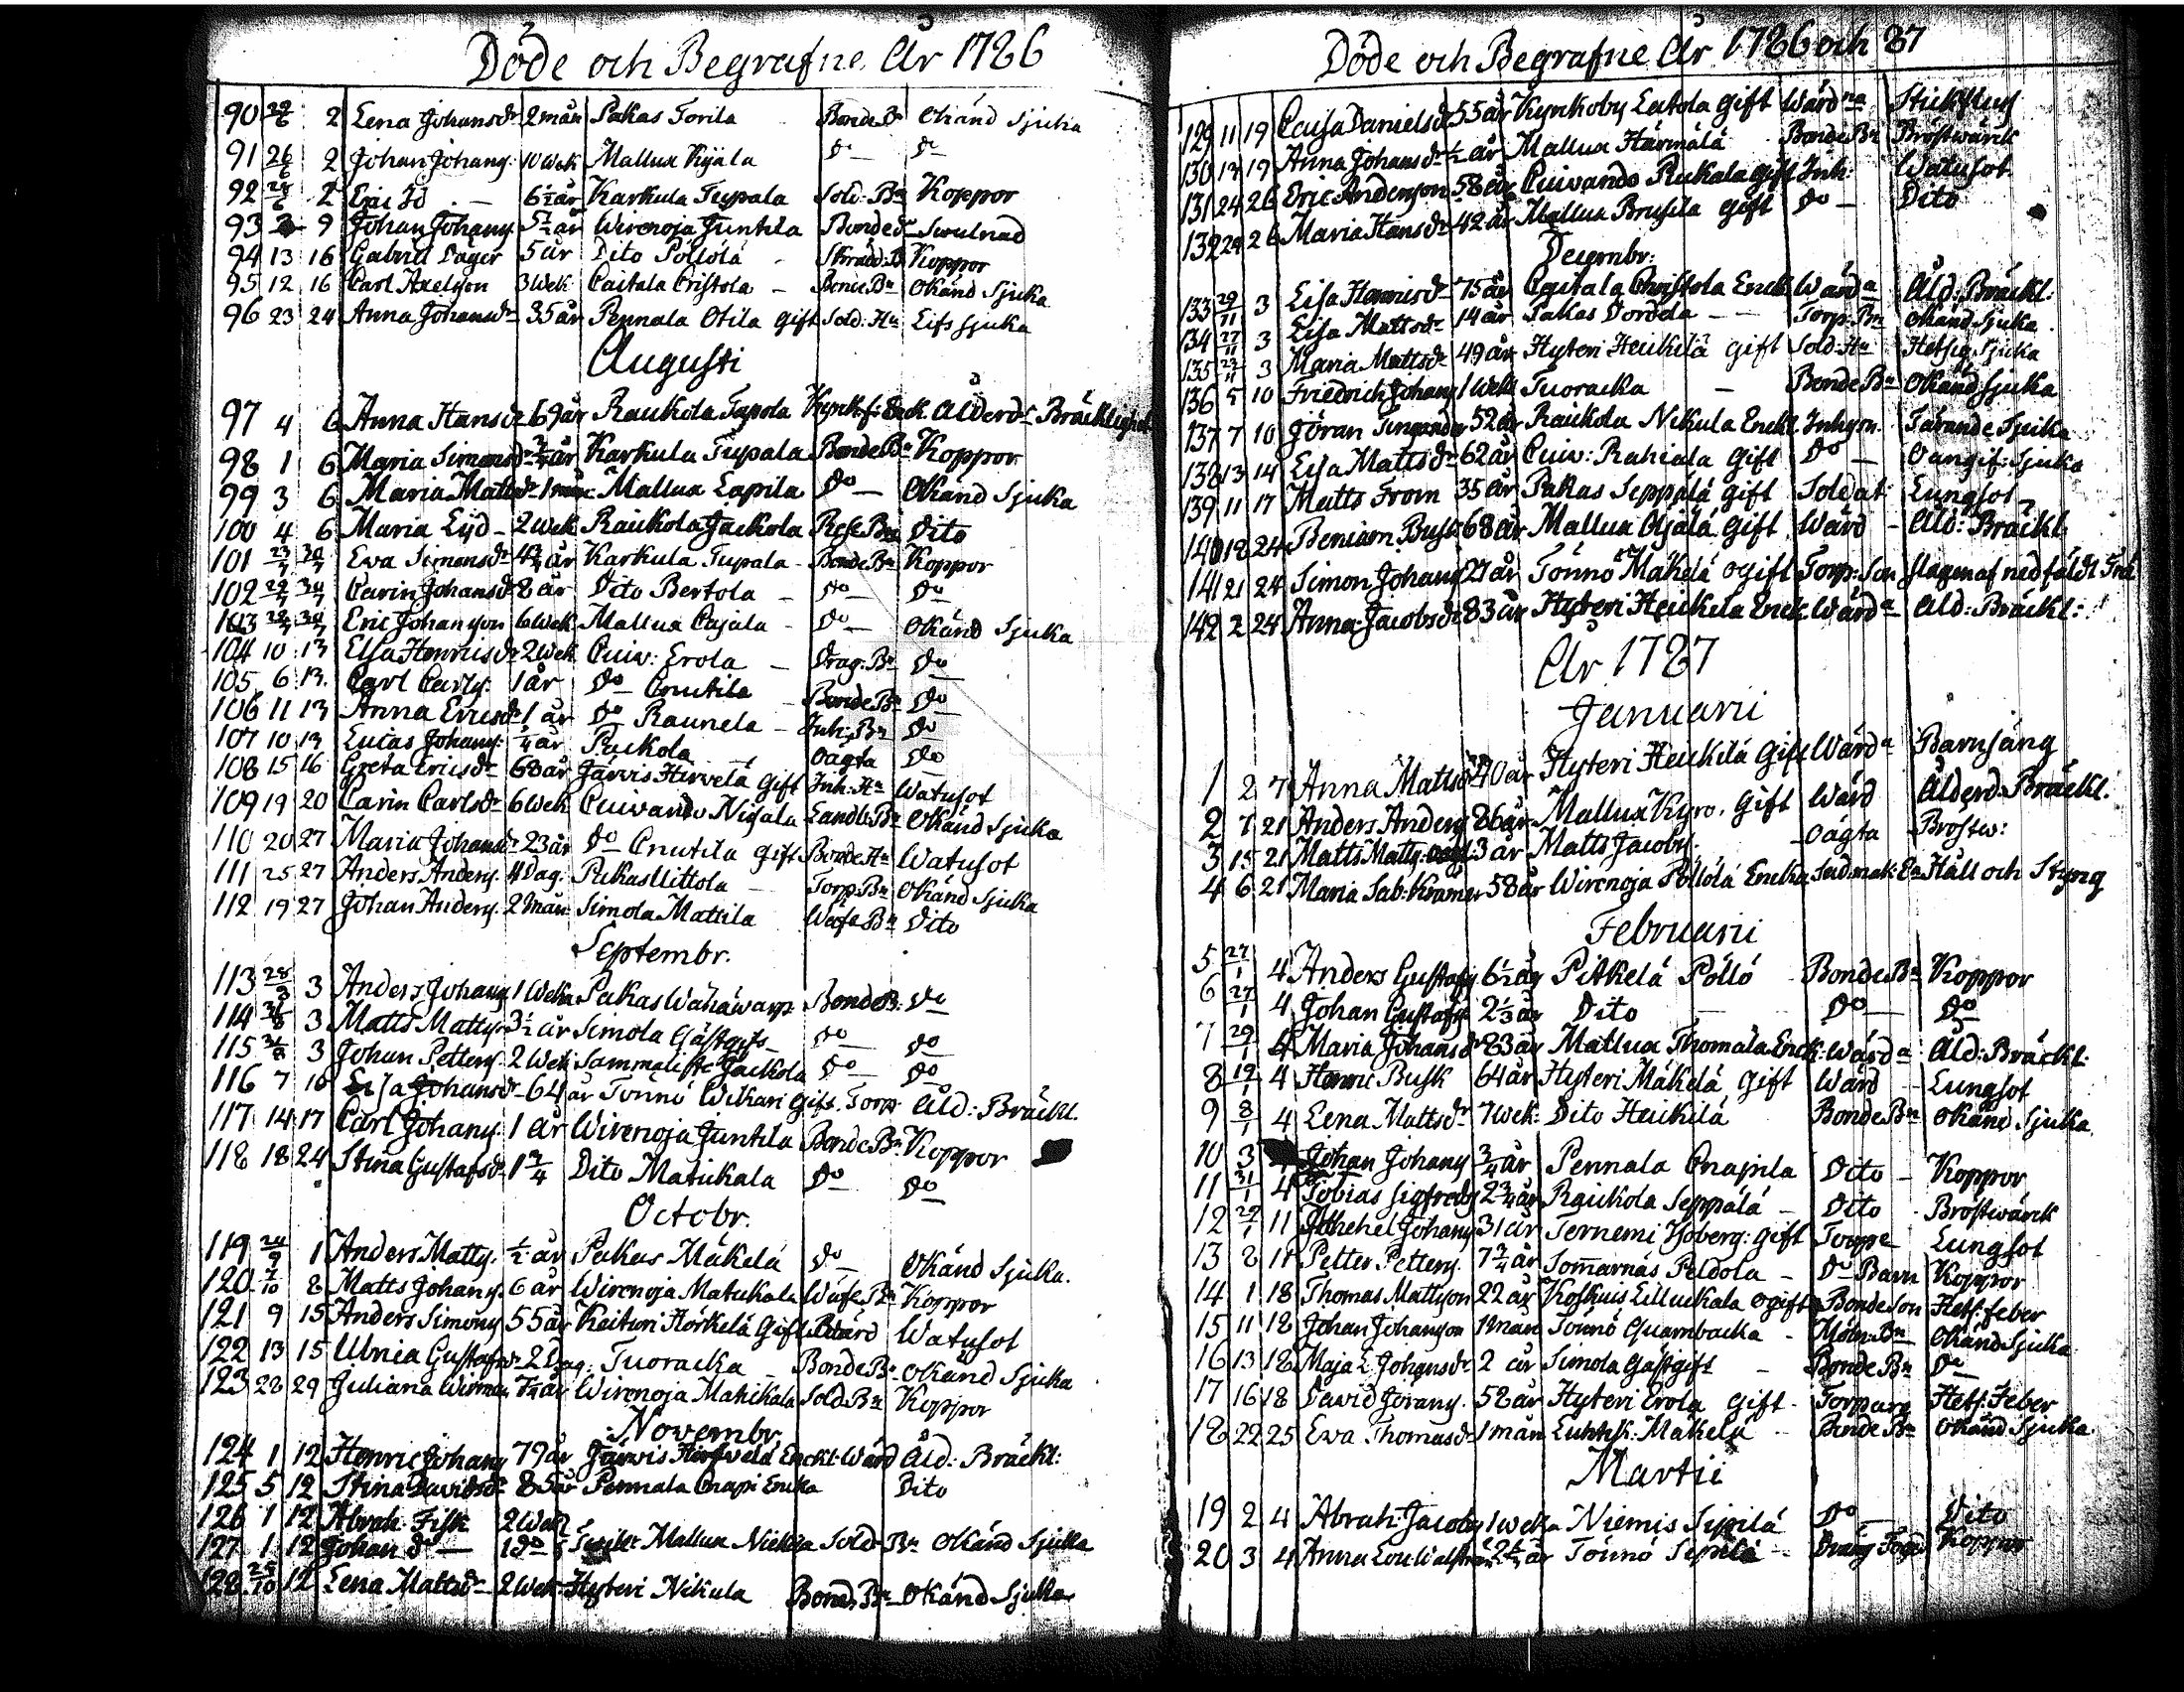 Döde och Begrafne År 1786
90 29/6 2 Lena Johansdr 2 mån Pakas Torila Bonde Bn Okänd Sjuka
91 26/6 2 Johan Johans: 10 Wek Mallua Kyälä do do
92 28/6 2 Eric Id — 6½ år Karkula Tupala Sold: Bn Koppor
93 9 Johan Johans: 5½ år Wirenoja Junttila Bonde Swulnad
94 13 16 Gabriel Lager 5 år Dito Pöllölä Skrädd: B Koppor
95 12 16 Carl Axelson 3 Wek Caitala Cristola — Bonde Bn Okänd Sjuka
96 23 24 Anna Johansdr 35 år Pennala Otila gift Sold: Hu Lifssjuka
Augusti
97 4 6 Anna Hansdr 69 år Raukola Tapola Kyrkf: Enk. Ålderds Bräcklighet
98 1 6 Maria Simonsdr ¾ år Karkula Tupala Bonde Bn Koppor
99 3 6 Maria Mattsdr 1 mån Mallua Lapila do — Okänd Sjuka
100 4 6 Maria Lijd — 2 Wek Raukola Jackola Dito
101 23/7 30/7 Eva Simonsdr 4¾ år Karkula Tupala — Bonde Bn Koppor
102 22/7 30/7 Carin Johansdr 8 år Dito Bertola — do do
103 28/7 30/7 Eric Johanson 6 Wek Mallua Cajala — do Okänd Sjuka
104 10 13 Elsa Henricsdr 2 Wek Cuiv: Erola — Drag: Bn do
105 6 13 Carl Carls: 1 år do Cnutila — Bonde Bn do
106 11 13 Anna Ericsdr 1 år do Raunela — Inh: Bn do
107 10 13 Lucas Johans: ¼ år Puckola — oägta do
108 15 16 Greta Ericsdr 68 år Järvis Hirvelä Gift Inh: Hu Watusot
109 19 20 Carin Carlsdr 6 Wek Cuivando Nigala Landb: Bn Okänd Sjuka
110 20 27 Maria Johansdr 23 år do Cnutila gift Bonde Hu Watusot
111 25 27 Anders Anders: 4 Dag. Pukas Uittola — Torp: Bn Okänd Sjuka
112 19 27 Johan Anders: 2 mån Simola Mattila Bn Dito
Septembr.
113 28/8 3 Anders Johans 1 Weka Pakas Wähäwarp Bonde B: do
114 31/8 3 Matts Matts: 3½ år Simola Gästgifs do do
115 31/8 3 Johan Petters: 2 Wek Sammaliste Jackola do do
116 7 10 Lisa Johansdr 64 år Tönnö Wekari Gift Torp Åld: Bräckl.
117 14 17 Carl Johans: 1 år Wirenoja Juntila Bonde Bn Koppor
118 18 24 Stina Gustafsdr 1¾ Dito Matukala do do
Octobr.
119 24/9 1 Anders Matts: ½ år Pakas Mäkelä do — Okänd Sjuka.
120 2/10 8 Matts Johans: 6 år Wirenoja Matukala Bn Koppor
121 9 15 Anders Simons 55 år Keituri Hörkelä Gift Wärd Watusot
122 13 15 Ulrica Gustafsdr 2 Dag: Tuoracka Bonde Bn Okänd Sjuka
123 28 29 Juliana år Wirenoja Matukala Sold: Bn Koppor
Novembr.
124 1 12 Henric Johans 79 år Järvis Hirfvelä Enckl: Wärd Åld: Bräckl:
125 5 12 Stina Davidsdr 85 år Pennala Cnapi Encka Dito
126 1 12 Abrah: Fisk 2 Wek
127 1 12 Johan do — 1 do Mallua Sold: Bn Okänd Sjuka
128 25/10 12 Lena Mattsdr 2 Wek Hyteri Nikula Bond: Bn Okänd Sjuka
Döde och Begrafne År 1786 och 87
129 11 19 Caisa Danielsdr 55 år Kyrkoby Latola gift Wärdna Stickfluss
130 13 19 Anna Johansdr ½ år Mallua Härmälä Bonde Bn Bröstwärck
131 24 26 Eric Anderson 58 år Cuivando Rukala gift Inh: Watusot
132 24 26 Maria Hansdr 42 år Mallua Brusila gift do — Dito
Decembr:
133 29/11 3 Lisa Henricsdr 75 år Caitala Christola Enck Wärda Åld: Bräckl:
134 27/11 3 Lisa Mattsdr 14 år Pakas — Torp: Bn Okänd Sjuka
135 23/11 3 Maria Mattsdr 49 år Hyteri Heickilä gift Sold: Hu Hetsig Sjuka
136 5 10 Friedrich Johans 1 Wek Tuoracka — Bonde Bn Okänd Sjuka
137 7 10 Göran 52 år Raukola Nikula Enckl Inhys. Tärande Sjuka
138 13 14 Lisa Mattsdr 62 år Cuiv: Rahiala Gift do — Oangif: Sjuka
139 11 17 Matts From 35 år Pakas Seppälä gift Soldat Lungsot
140 18 24 Beniam Busk 68 år Mallua Ojälä gift Wärd — Åld: Bräckl
141 21 24 Simon Johans 27 år Tönnö Mäkelä ogift Torp: Son slagen af nedfäldt Trä
142 2 24 Anna Jacobsdr 83 år Hyteri Heickilä Enck Wärda Åld: Bräckl:
År 1787
Januarii
1 2 7 Anna Mattsdr 40 år Hyteri Heickilä Gift Wärda Barnsäng
2 7 21 Anders Anders 86 år Mallua Kyro. Gift Wärd Ålderd. Bräckl.
3 15 21 Matts Matts: 3 år Matts Jacobs: oägta Bröstw:
4 6 21 Maria Sab: Krämer 58 år Wirenoja Pöllölä Encka Håll och Styng
Februarii
5 27/1 4 Anders Gustafs 6½ år Pitkelä Pöllö Bonde Bn Koppor
6 27/1 4 Johan Gustafs 2⅓ år Dito — do do
7 29/1 4 Maria Johansdr 83 år Mallua Thomala Enck Wärda Åld: Bräckl:
8 19/1 4 Henric Busk 64 år Hyteri Mäkelä Gift Wärd — Lungsot
9 8/1 4 Lena Mattsdr 7 Wek: Dito Heickilä Bonde Bn Okänd Sjuka
10 3 Johan Johans ¾ år Pennala Cnapila Dito — Koppor
11 31/1 4 Tobias Sigfreds 2¾ år Raukola Seppälä — Dito Bröstwärck
12 29/1 11 Michel Johans 31 år Ternemi Sjöberg: gift Torpe Lungsot
13 8 11 Petter Petters: 7¾ år Somarnäs Peldola — do Barn Koppor
14 1 18 Thomas Mattson 22 år Koskuis Lilluckala ogift Bonde Son Hets: feber
15 11 18 Johan Johanson mån Tönnö Quarnbacka — Mjöln: Bn Okänd Sjuka
16 13 18 Maja L. Johansdr 2 år Simola Gästgift — Bonde Bn do
17 16 18 David Jörans: 58 år Hyteri Erola gift — Torpare Hets: Feber
18 22 25 Eva Thomasdr 1 mån Luhtik: Mäkelä — Bonde Bn Okänd Sjuka
Martii
19 2 4 Abrah: Jacobs 1 weka Niemis Sipilä do — Dito
20 3 4 Anna år Tönnö Sepälä — Koppor